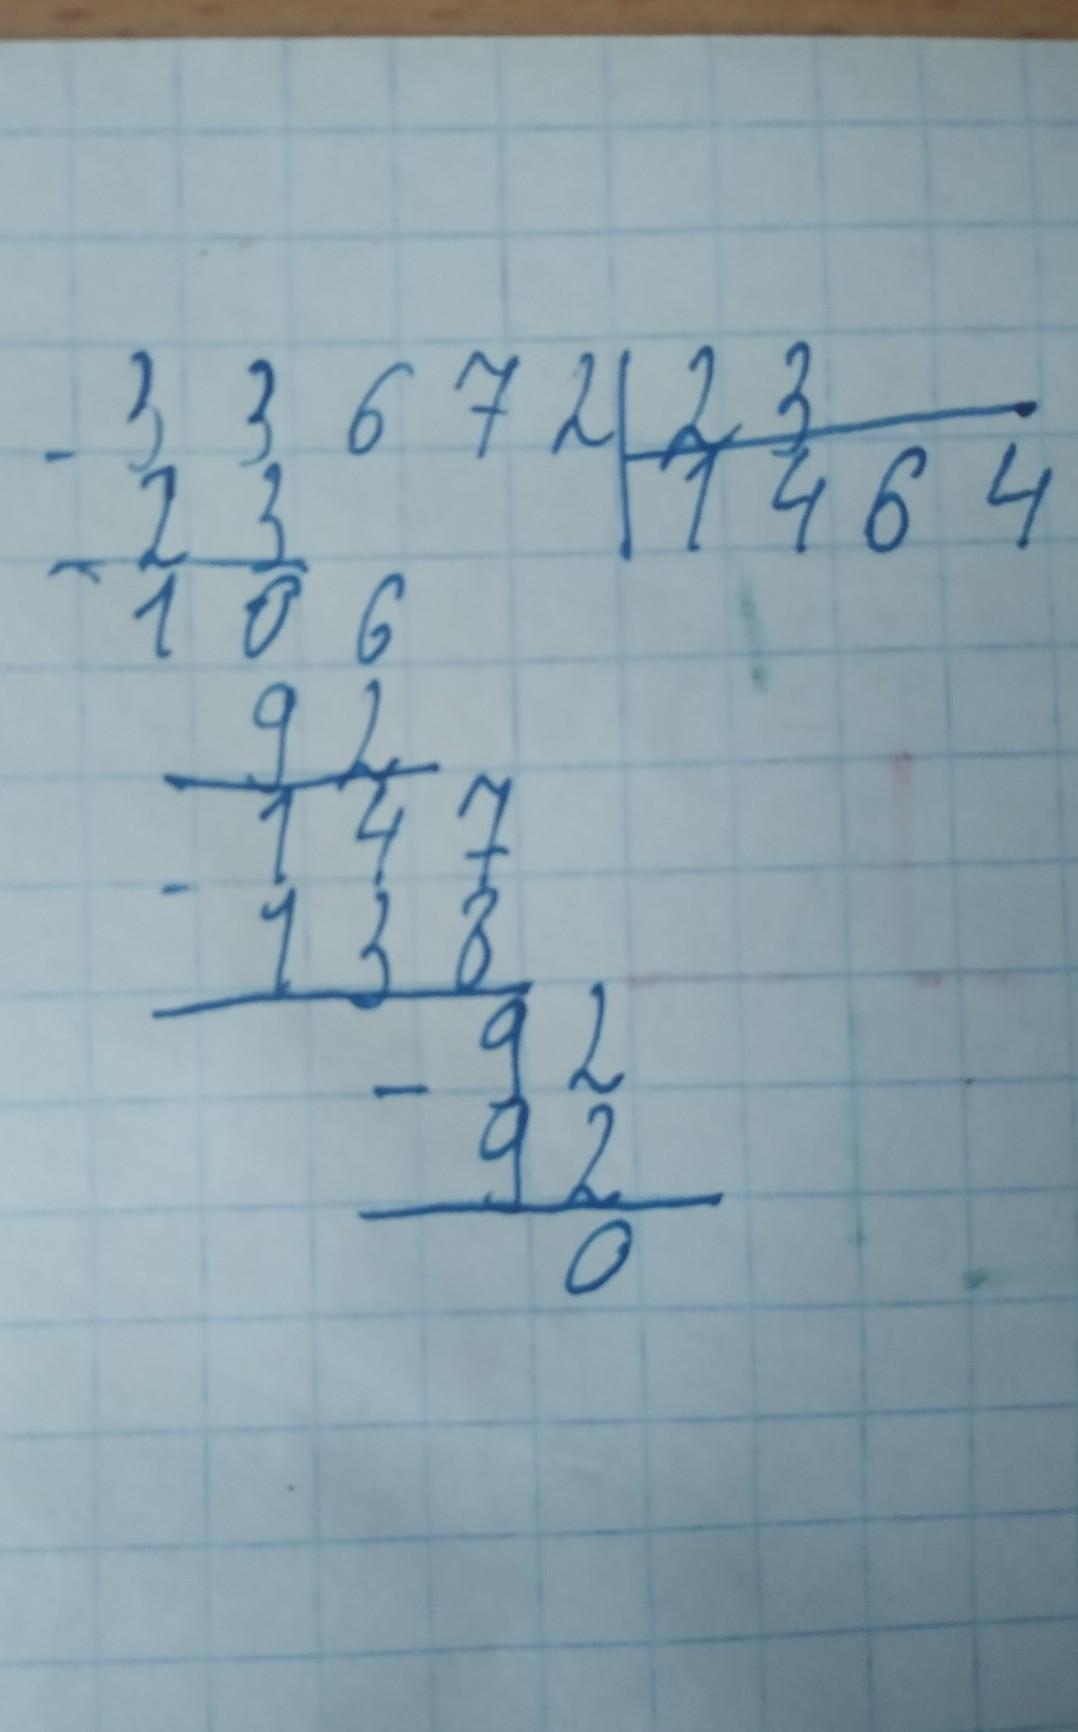 - 3 3 6 7 2 | 2 3
2 3 | 1 4 6 4
- 1 0 6
9 2
1 4 7
- 1 3 8
9 2
- 9 2
0